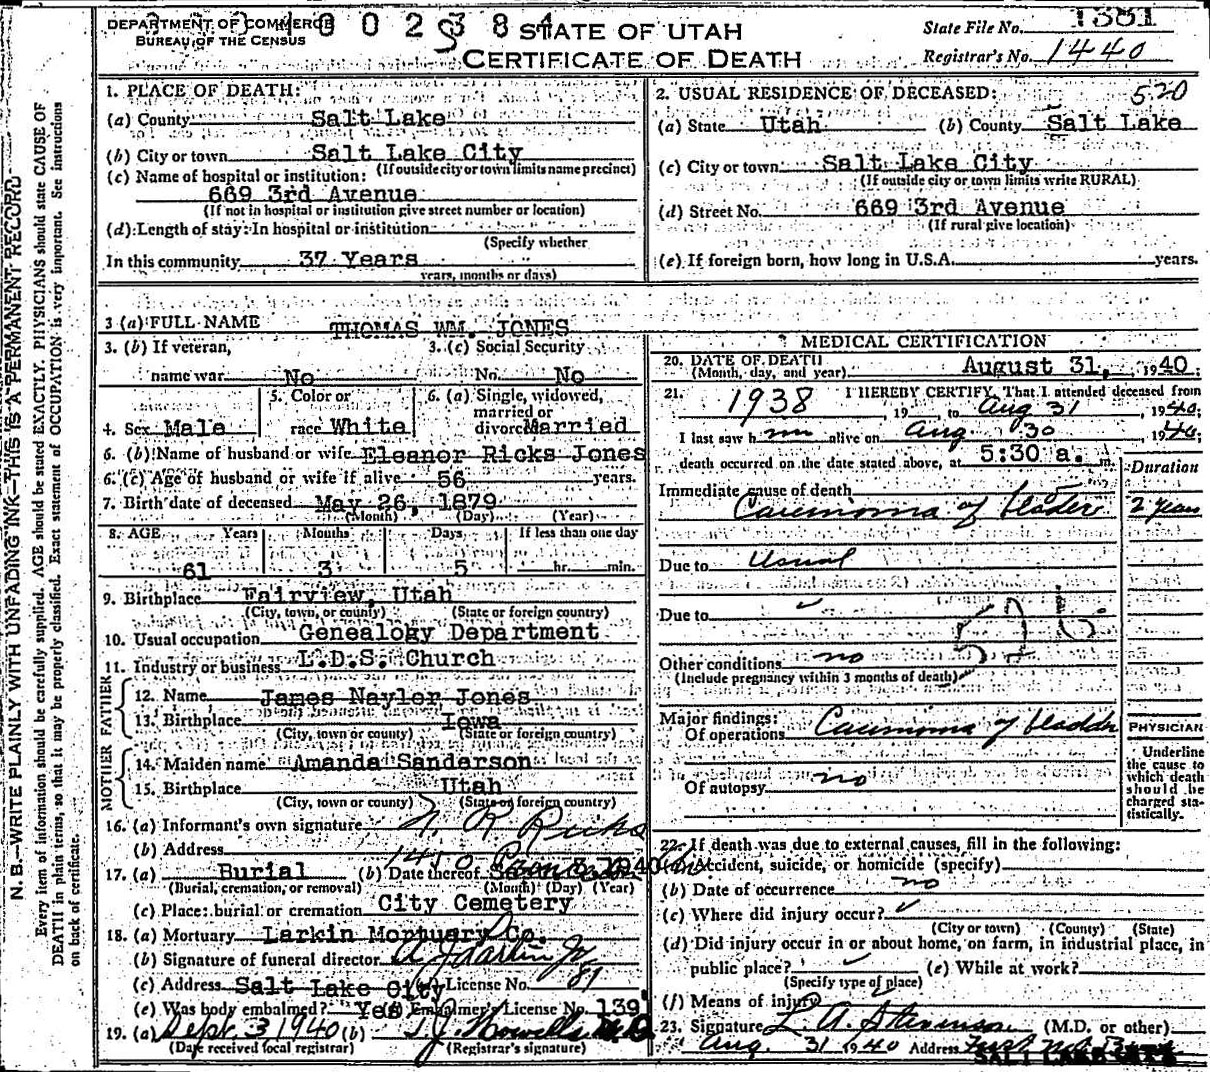 DEPARTMENT OF COMMERCE
BUREAU OF THE CENSUS
STATE OF UTAH
CERTIFICATE OF DEATH
State File No. 1381
Registrar's No. 1440
N. B.—WRITE PLAINLY WITH UNFADING INK—THIS IS A PERMANENT RECORD
Every item of information should be carefully supplied. AGE should be stated EXACTLY. PHYSICIANS should state CAUSE OF
DEATH in plain terms, so that it may be properly classified. Exact statement of OCCUPATION is very important. See instructions
on back of certificate.
1. PLACE OF DEATH:
(a) County Salt Lake
(b) City or town Salt Lake City
(If outside city or town limits name precinct)
(c) Name of hospital or institution:
669 3rd Avenue
(If not in hospital or institution give street number or location)
(d) Length of stay: In hospital or institution
(Specify whether
In this community 37 Years
years, months or days)
2. USUAL RESIDENCE OF DECEASED: 520
(a) State Utah (b) County Salt Lake
(c) City or town Salt Lake City
(If outside city or town limits write RURAL)
(d) Street No. 669 3rd Avenue
(If rural give location)
(e) If foreign born, how long in U.S.A. years.
3 (a) FULL NAME THOMAS WM. JONES
3. (b) If veteran, name war No
3. (c) Social Security No. No
4. Sex Male
5. Color or race White
6. (a) Single, widowed, married or divorced Married
6. (b) Name of husband or wife Eleanor Ricks Jones
6. (c) Age of husband or wife if alive 56 years.
7. Birth date of deceased May 26, 1879
(Month) (Day) (Year)
8. AGE Years Months Days If less than one day
61 3 5 hr. min.
9. Birthplace Fairview, Utah
(City, town, or county) (State or foreign country)
10. Usual occupation Genealogy Department
11. Industry or business L.D.S. Church
FATHER
12. Name James Naylor Jones
13. Birthplace Iowa
(City, town or county) (State or foreign country)
MOTHER
14. Maiden name Amanda Sanderson
15. Birthplace Utah
(City, town or county) (State or foreign country)
16. (a) Informant's own signature N. R. Ricks
(b) Address
17. (a) Burial (b) Date thereof 1940
(Burial, cremation, or removal) (Month) (Day) (Year)
(c) Place: burial or cremation City Cemetery
18. (a) Mortuary Larkin Mortuary Co.
(b) Signature of funeral director A J Larkin Jr
(c) Address Salt Lake City License No. 81
(e) Was body embalmed? Yes Embalmer's License No. 139
19. (a) Sept. 3 1940 (b)
(Date received local registrar) (Registrar's signature)
MEDICAL CERTIFICATION
20. DATE OF DEATH August 31, 1940
(Month, day, and year)
21. I HEREBY CERTIFY, That I attended deceased from
1938, 19 , to Aug 31, 1940;
I last saw him alive on Aug 30 1940;
death occurred on the date stated above, at 5:30 a. m.
Duration
Immediate cause of death
Carcinoma of bladder 2 years
Due to Usual
Due to
Other conditions no
(Include pregnancy within 3 months of death)
Major findings:
Of operations Carcinoma of bladder
Of autopsy no
PHYSICIAN
Underline the cause to which death should be charged statistically.
22. If death was due to external causes, fill in the following:
(a) Accident, suicide, or homicide (specify)
(b) Date of occurrence no
(c) Where did injury occur?
(City or town) (County) (State)
(d) Did injury occur in or about home, on farm, in industrial place, in
public place? (e) While at work?
(Specify type of place)
(f) Means of injury
23. Signature L. A. Stevenson (M.D. or other)
Aug. 31 1940 Address